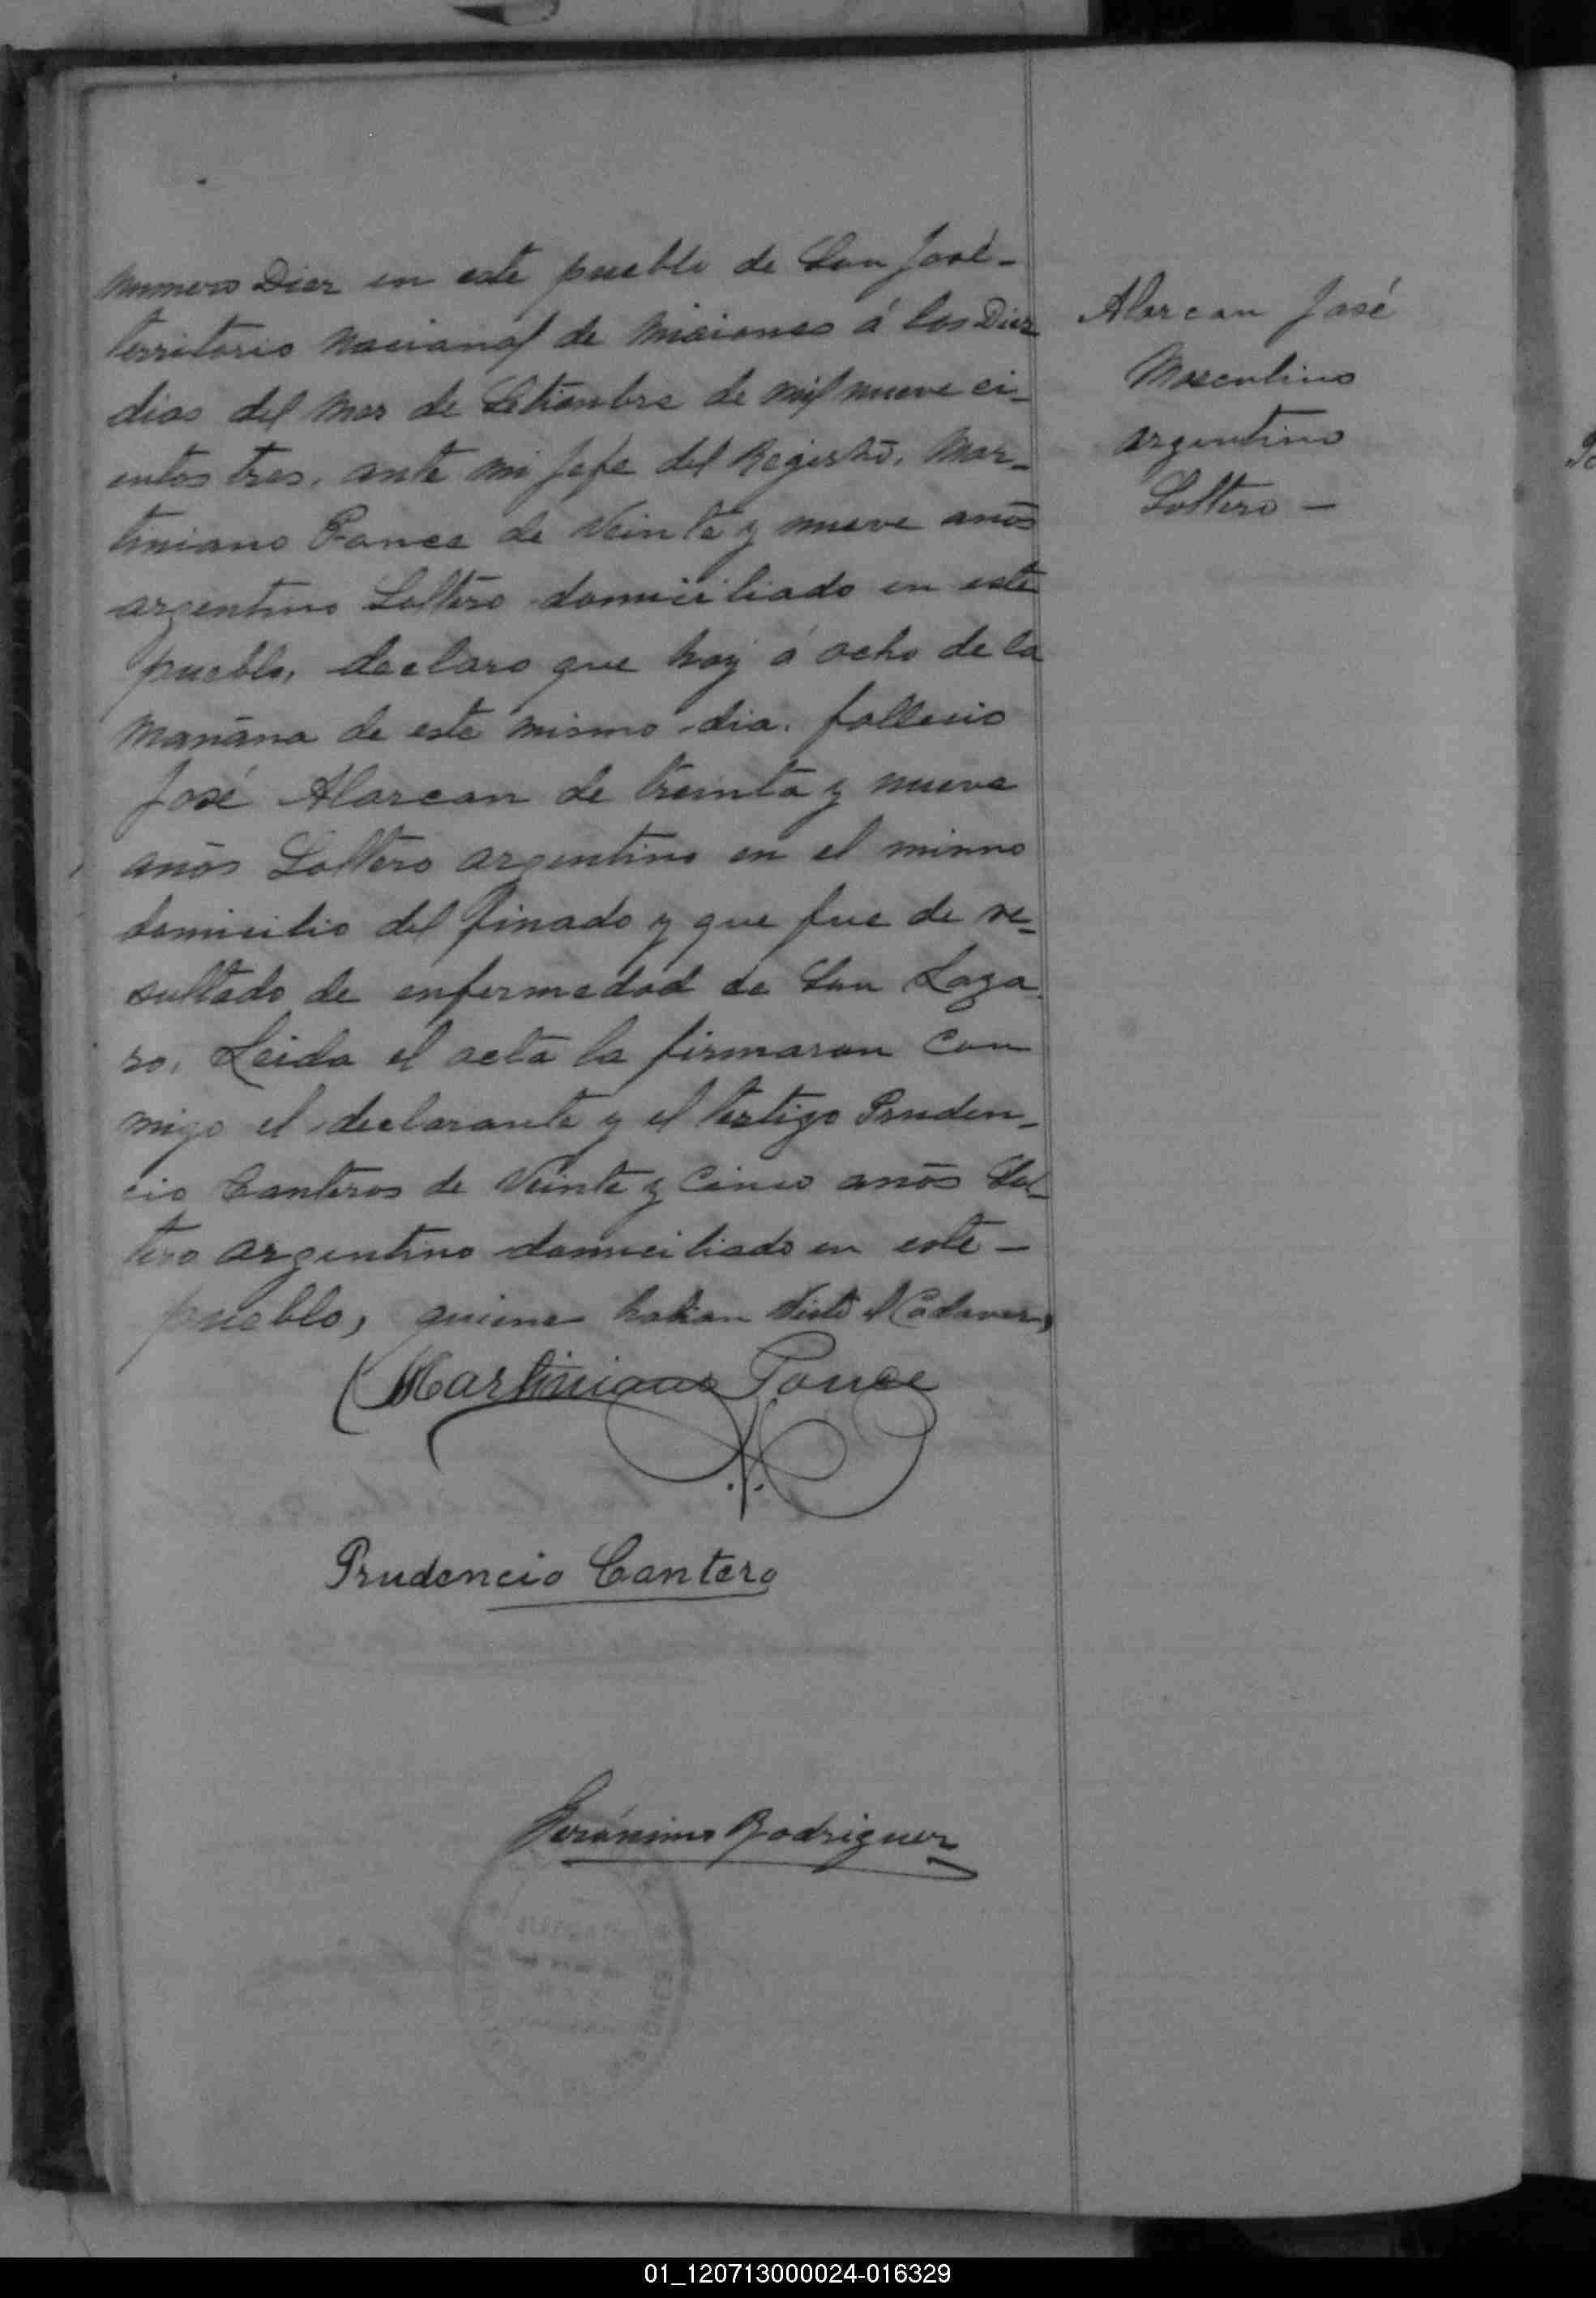 Numero Diez en este pueblo de San José-
territorio Nacional de Misiones á los Diez
dias del Mes de Setiembre de mil nueve ci-
entos tres, ante mi Jefe del Registro, Mar-
tiniano Ponce de Veinte y nueve anōs
argentino Soltero domiciliado en este
pueblo, declaro que hoy á ocho de la
manāna de este mismo dia, fallecio
José Alarcon de treinta y nueve
anōs Soltero argentino en el mismo
domicilio del finado y que fue de re-
sultado de enfermedad de San Laza
ro, Leida el acta la firmaron con
migo el declarante y el testigo Pruden-
cio Canteros de Veinte y Cinco anōs Sol-
tero argentino domiciliado en este -
pueblo, quienes habian visto el Cadaver,
Martiniano Ponce
Prudencio Cantero
Gerónimo Rodriguez
Alarcon José
Masculino
argentino
Soltero -
01_120713000024-016329